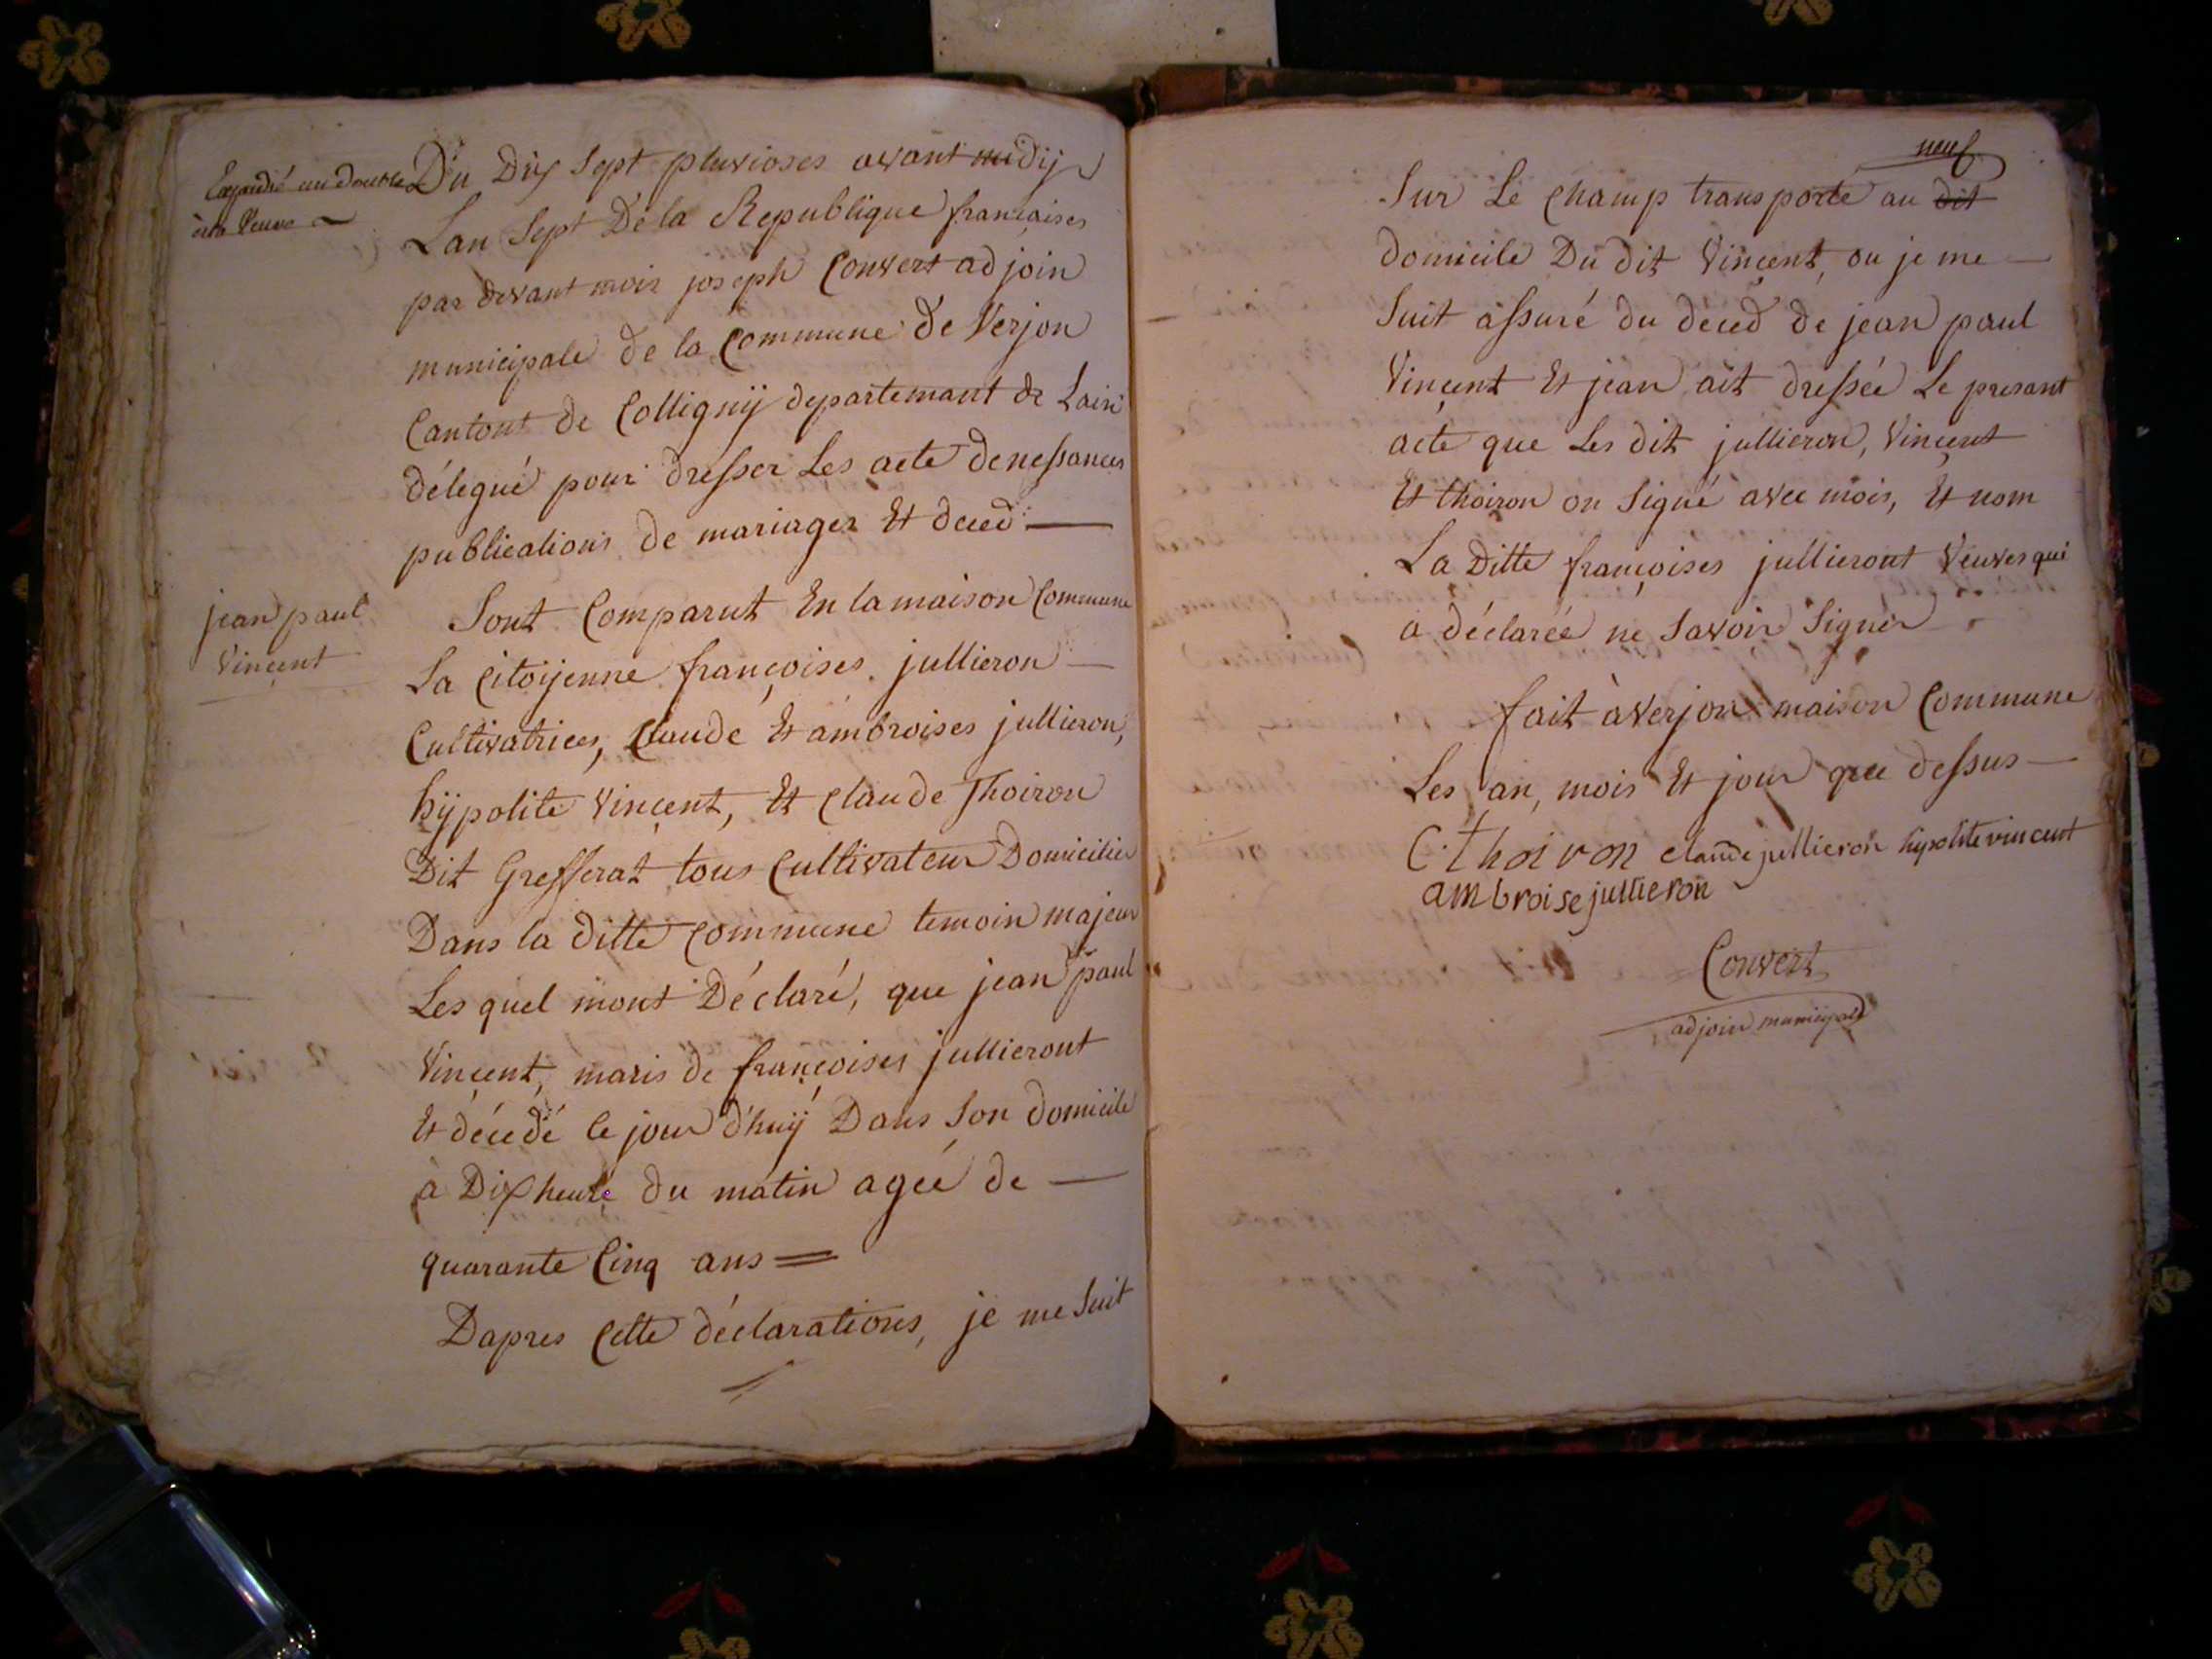 Expedié un double
à la Veuve
Du Dix Sept pluvioses avant midij
Lan Sept De la Republique françaises
par devant mois joseph Convert adjoin
municipale de la Commune de Verjon
Cantont de Colligny departemant de Lain
délegué pour dresser Les acte de nessances
publications de mariages Et deced
jean paul
Vincent
Sont Comparut En la maison Commune
La Citoijenne françoises jullieron
Cultivatrices, Claude Et ambroises jullieron,
hijpolite Vincent, Et Claude Thoiron
Dit Grefferat tous Cultivateur Domicilier
Dans la ditte Commune temoin majeur
Les quel mont Déclaré, que jean paul
Vincent, maris de françoises jullieront
Et décedé le jour d'huij Dans Son domicile
à Dix heure du matin ageé de
quarante Cinq ans
Dapres Cette déclarations, je me Suit
neuf
Sur Le Champ transporté au dit
domicile Du dit Vincent, ou je me
Suit assuré du deced de jean paul
Vincent Et jean ait dressée Le presant
acte que Les dit jullieron, Vincent
Et thoiron on Signé avec mois, Et nom
La Ditte françoises jullieront Veuves qui
a déclareé ne Savoir Signér
fait à Verjon maison Commune
Les an, mois Et jour que dessus
C. thoiron claude jullieron hipolite vincent
ambroise jullieron
Convert
adjoin municipale